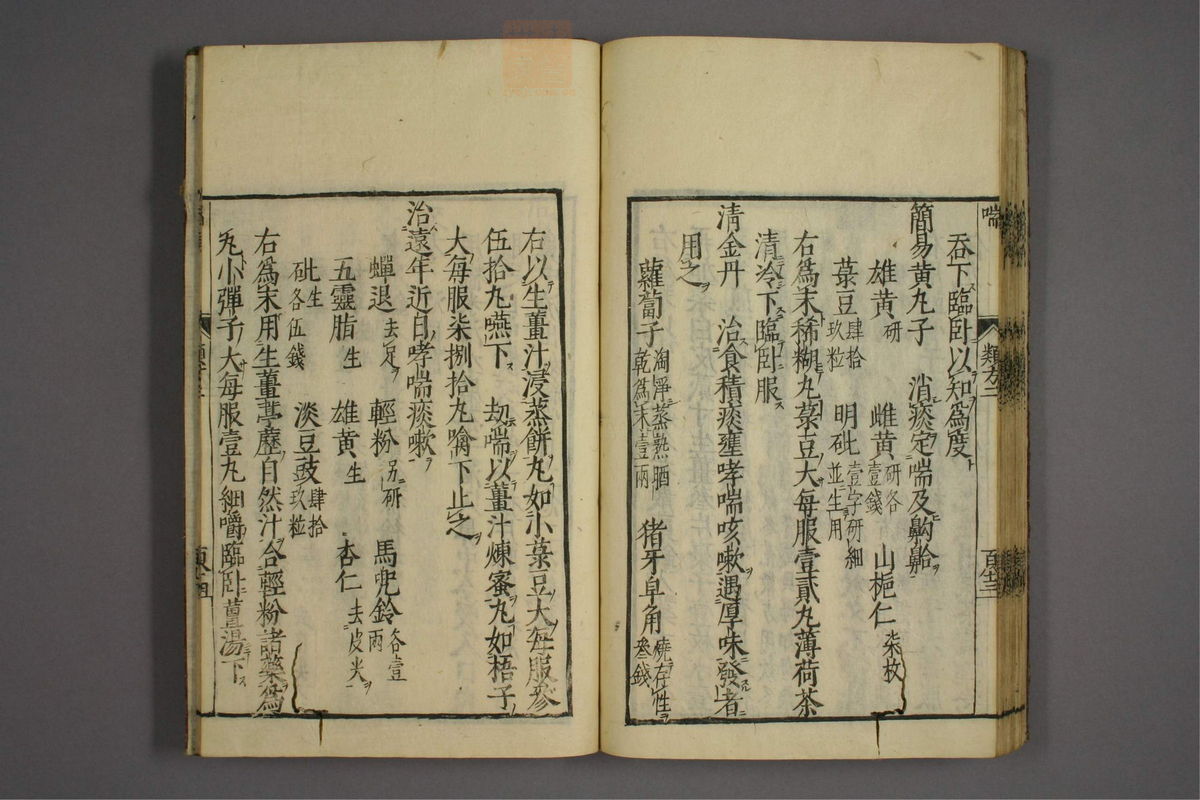 喘
類方二
吞下臨卧以知爲度
簡易黄丸子 消痰定喘及齁䶎
雄黄研 雌黄研各壹錢 山梔仁柒枚
菉豆肆拾玖粒 明砒壹字研細並生用
右爲末稀糊丸菉豆大每服壹貳丸薄荷茶
清冷下臨卧服
清金丹 治食積痰壅哮喘咳嗽遇厚味發者
用之
蘿蔔子淘淨蒸熟晒乾爲末壹兩 猪牙皁角燒存性叁錢
右以生薑汁浸蒸餅丸如小菉豆大每服叄
伍拾丸嚥下 刼喘以薑汁煉蜜丸如梧子
大每服柒捌拾丸噙下止之
治遠年近日哮喘痰嗽
蟬退去足 輕粉另研 馬兜鈴各壹兩
五靈脂生 雄黄生 杏仁去皮尖
砒生各伍錢 淡豆豉肆拾玖粒
右爲末用生薑葶藶自然汁合輕粉諸藥爲
丸小彈子大每服壹丸細嚼臨卧薑湯下